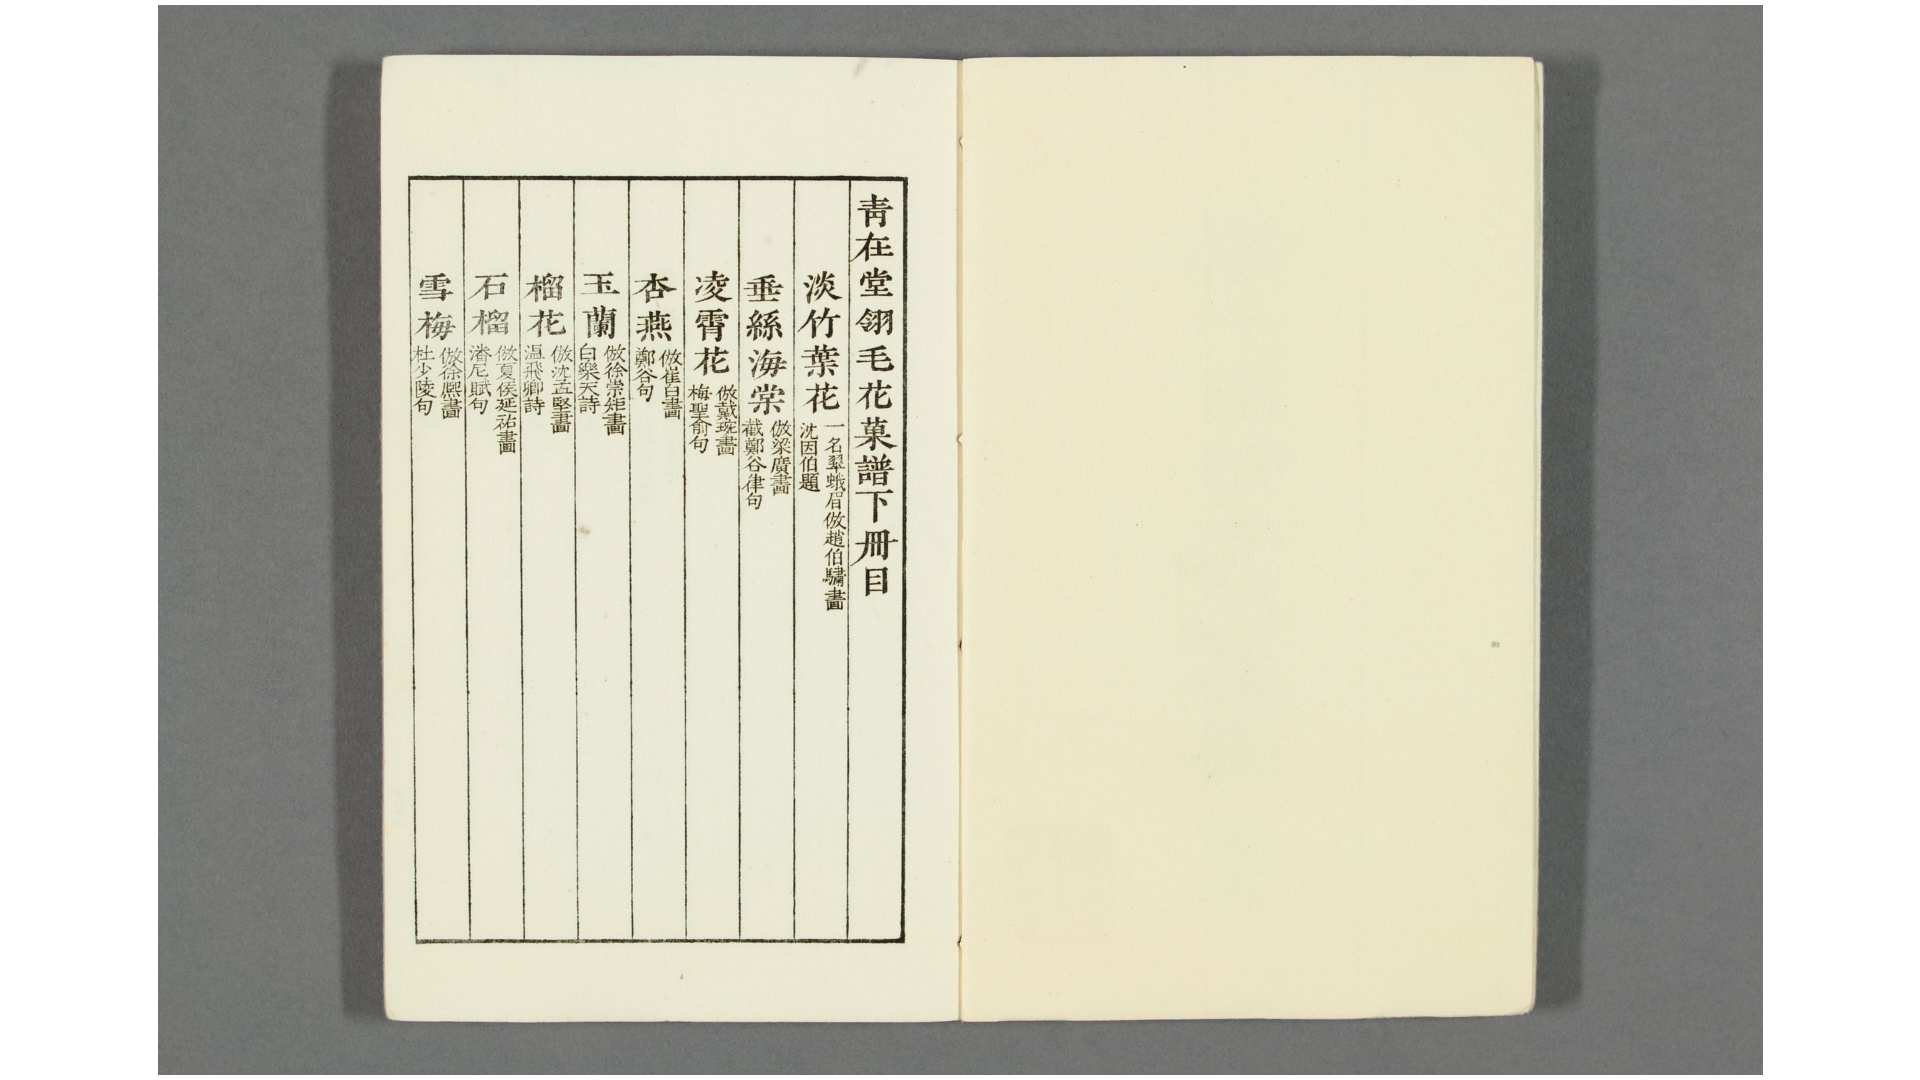 靑在堂翎毛花菓譜下冊目
淡竹葉花
一名翠蛾眉倣趙伯驌畫
沈因伯題
垂絲海棠
倣梁廣畫
截鄭谷律句
凌霄花
倣戴琬畫
梅聖俞句
杏燕
倣崔白畫
鄭谷句
玉蘭
倣徐崇矩畫
白樂天詩
榴花
倣沈孟堅畫
溫飛卿詩
石榴
倣夏侯延祐畫
潘尼賦句
雪梅
倣徐熈畫
杜少陵句